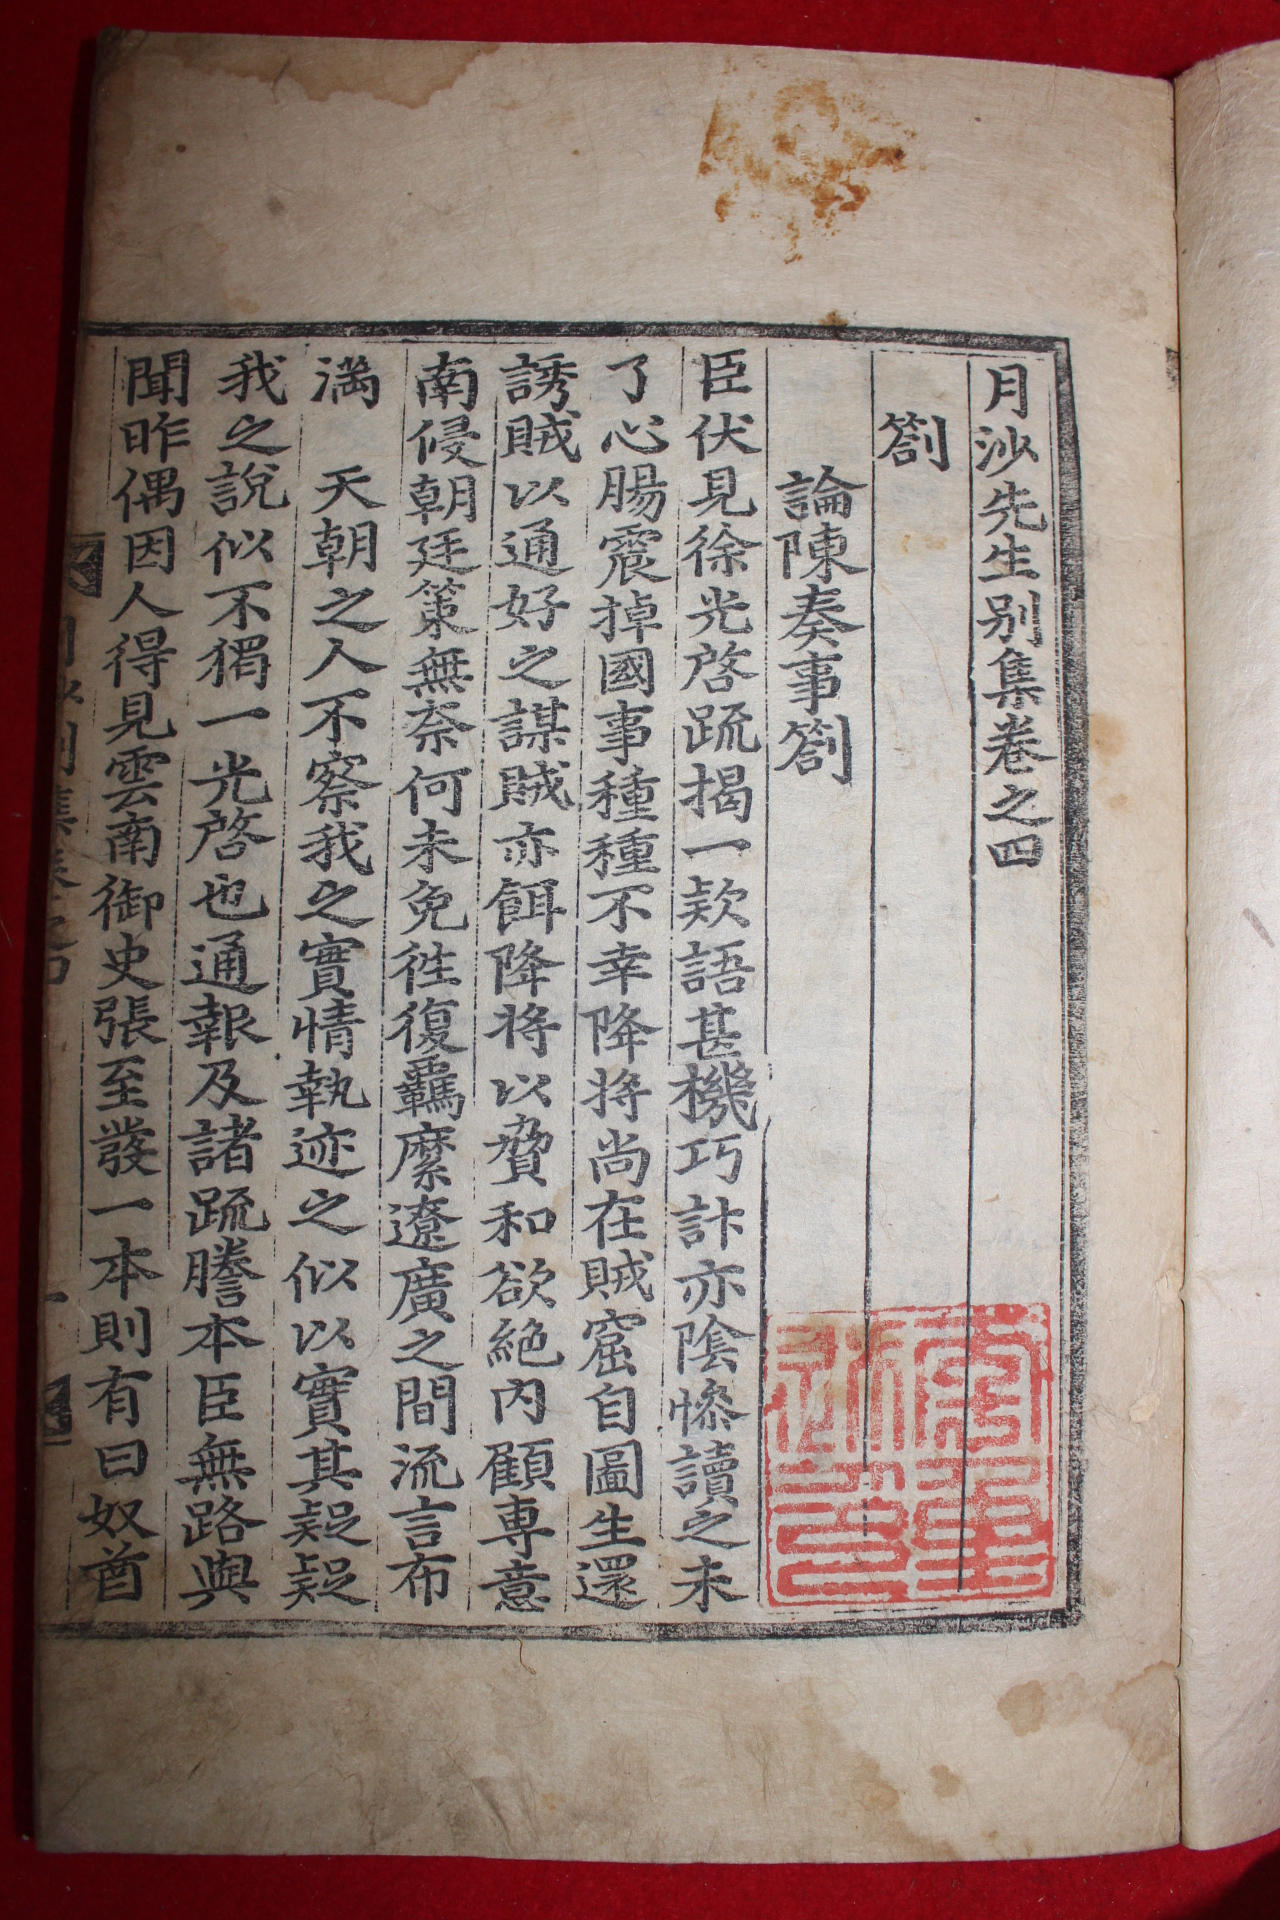 月沙先生別集卷之四
劄
論陳奏事劄
臣伏見徐光啓䟽揭一款語甚機巧計亦陰慘讀之未
了心腸震掉國事種種不幸降將尚在賊窟自圖生還
誘賊以通好之謀賊亦餌降將以脅和欲絶內顧專意
南侵朝廷策無柰何未免徃復羈縻遼廣之間流言布
滿 天朝之人不察我之實情執迹之似以實其疑疑
我之說似不獨一光啓也通報及諸䟽謄本臣無路與
聞昨偶因人得見雲南御史張至發一本則有曰奴酋